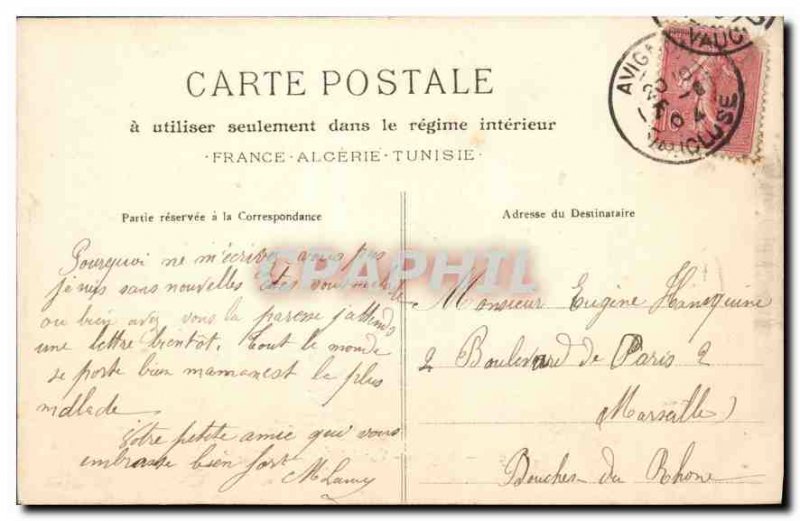 CARTE POSTALE
à utiliser seulement dans le régime intérieur
FRANCE - ALGÉRIE - TUNISIE
AVIGNON
VAUCLUSE
Partie réservée à la Correspondance
Pourquoi ne m'écrivez vous pas
je suis sans nouvelles êtes vous malade
ou bien avez vous la paresse j'attends
une lettre bientôt. Tout le monde
se porte bien maman est la plus
malade.
Votre petite amie qui vous
embrasse bien fort
M Lamy
Adresse du Destinataire
Monsieur Eugène
2 Boulevard de Paris 2
Marseille
Bouches-du Rhone
CPAPHIL